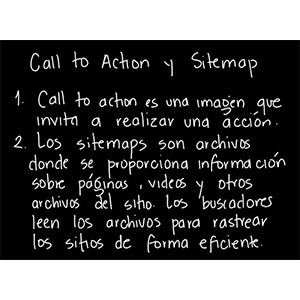 Call to Action y Sitemap
1. Call to action es una imagen que
invita a realizar una acción.
2. Los sitemaps son archivos
donde se proporciona información
sobre páginas, videos y otros
archivos del sitio. Los buscadores
leen los archivos para rastrear
los sitios de forma eficiente.